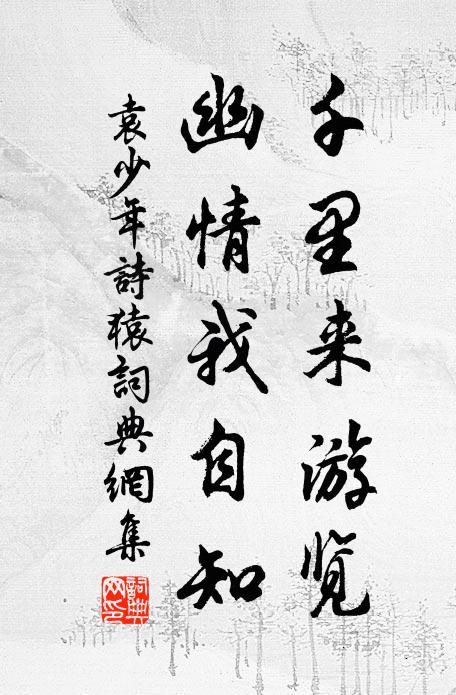 千里来游览
幽情我自知
袁少年詩猿詞典網集
詞典